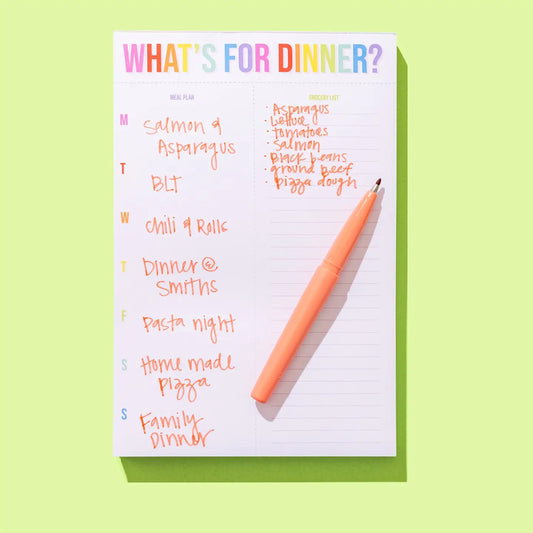 WHAT'S FOR DINNER?
MEAL PLAN
M
Salmon &
Asparagus
T
BLT
W
Chili & Rolls
T
Dinner @
Smiths
F
Pasta night
S
Home made
Pizza
S
Family
Dinner
GROCERY LIST
· Asparagus
· Lettuce
· Tomatoes
· Salmon
· Black beans
· ground beef
· Pizza dough